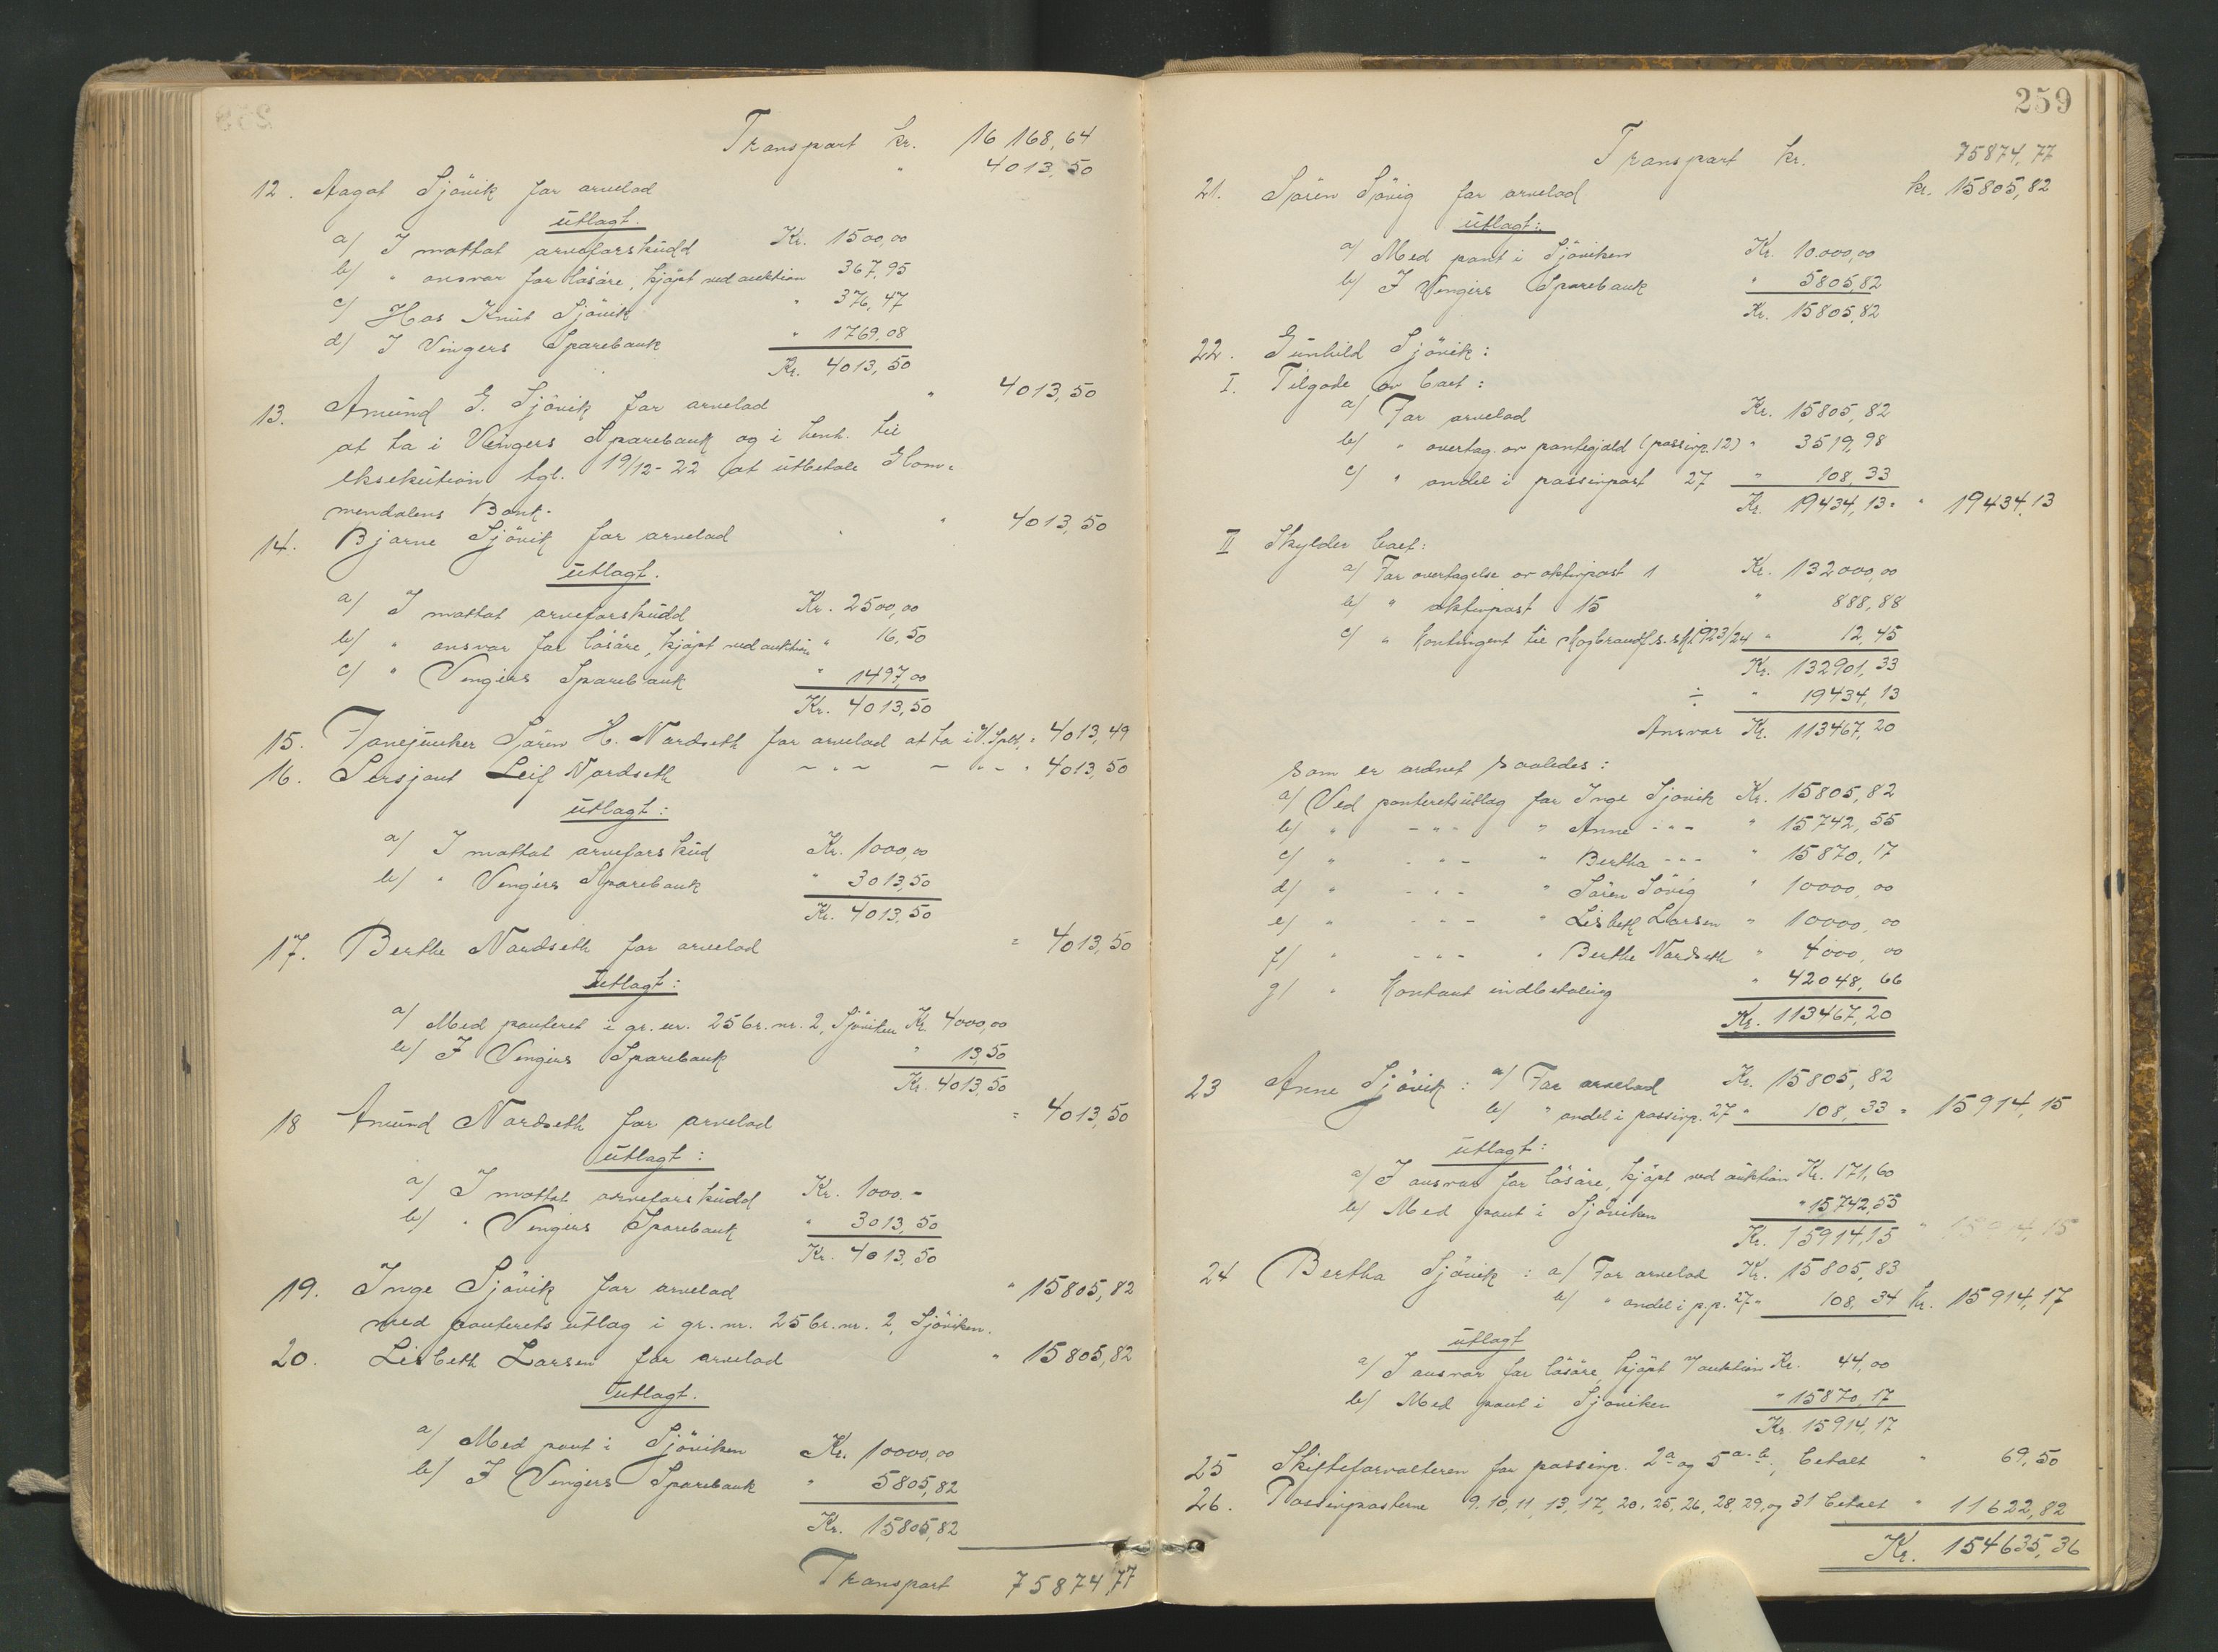 Transport kr. 16 168,64
12. Aagot Sjövik for arvelod " 4013,50
utlagt.
a/ I mottat arveforskudd Kr. 1500,00
b/ " ansvar for lösöre, kjöpt ved auktion 367,95
c/ Hos Knut Sjövik " 376,47
d/ I Vingers Sparebank " 1769,08
Kr. 4013,50
13. Amund G. Sjövik for arvelod " 4013,50
at ta i Vingers Sparebank og i henh. til
eksekution tgl. 19/12-22 at utbetale Glom=
mendalens Bank.
14. Bjarne Sjövik for arvelod " 4013,50
utlagt.
a/ I mottat arveforskudd Kr. 2500,00
b/ " ansvar for lösöre, kjöpt ved auktion " 16,50
c/ " Vingers Sparebank " 1497,00
Kr. 4013,50
15. Fanejunker Sören H. Nordseth for arvelod at ta i V. Spbk. " 4013,49
16. Sersjant Leif Nordseth - " - - " - " 4013,50
utlagt:
a/ I mottat arveforskud Kr. 1000,00
b/ " Vingers Sparebank " 3013,50
Kr. 4013,50
17. Berthe Nordseth for arvelod = 4013,50
utlagt:
a/ Med panteret i gr. nr. 25 br. nr. 2, Sjöviken Kr. 4000,00
b/ I Vingers Sparebank " 13,50
Kr. 4013,50
18 Amund Nordseth for arvelod = 4013,50
utlagt:
a/ I mottat arveforskudd Kr. 1000.-
b/ " Vingers Sparebank " 3013,50
Kr. 4013,50
19. Inge Sjövik for arvelod " 15805,82
med panterets utlag i gr. nr. 25 br. nr. 2, Sjöviken.
20. Lisbeth Larsen for arvelod " 15805,82
utlagt.
a/ Med pant i Sjöviken Kr. 10000,00
b/ I Vingers Sparebank " 5805,82
Kr. 15805,82
Transport 75874,77
259
Transport kr. 75874,77
21. Sören Sövig for arvelod kr. 15805,82
utlagt:
a/ Med pant i Sjöviken Kr. 10.000,00
b/ I Vingers Sparebank " 5805,82
Kr. 15805,82
22. Gunhild Sjövik:
I. Tilgode av boet:
a/ For arvelod Kr. 15805,82
b/ " overtag. av pantegjæld (passivp. 12) " 3519,98
c/ " andel i passivpost 27 " 108,33
Kr. 19434,13 = " 19434,13
II Skylder boet:
a/ For overtagelse av aktivpost 1 Kr. 132000,00
b/ " aktivpost 15 " 888,88
c/ " Kontingent til Skogbrandf. s. 1923/24 " 12,45
Kr. 132901,33
÷ " 19434,13
Ansvar Kr. 113467,20
som er ordnet saaledes:
a/ Ved panteretsutlag for Inge Sjövik Kr. 15805,82
b/ " - " - " Anne - " - " 15742,55
c/ " - " - " Bertha - " - " 15870,17
d/ " - " - " Sören Sövig " 10000,00
e/ " - " - " Lisbeth Larsen " 10000,00
f/ " - " - " Berthe Nordseth " 4000,00
g/ " Kontant indbetaling " 42048,66
Kr. 113467,20
23 Anne Sjövik: a/ For arvelod Kr. 15805,82
b/ " andel i passivp. 27 " 108,33 = 15914,15
utlagt:
a/ I ansvar for lösöre, kjöpt ved auktion Kr. 171,60
b/ Med pant i Sjöviken " 15742,55
Kr. 15914,15 " 15914,15
24 Bertha Sjövik: a/ For arvelod Kr. 15805,83
b/ " andel i p.p. 27 " 108,34 Kr. 15914,17
utlagt
a/ I ansvar for lösöre, kjöpt v/ auktion Kr. 44,00
b/ Med pant i Sjöviken " 15870,17
Kr. 15914,17
25 Skifteforvalteren for passivp. 2 a og 5 a. b., betalt " 69,50
26. Passivposterne 9. 10, 11, 13, 17, 20, 25, 26, 28, 29, og 31 betalt " 11622,82
Kr. 154635,36